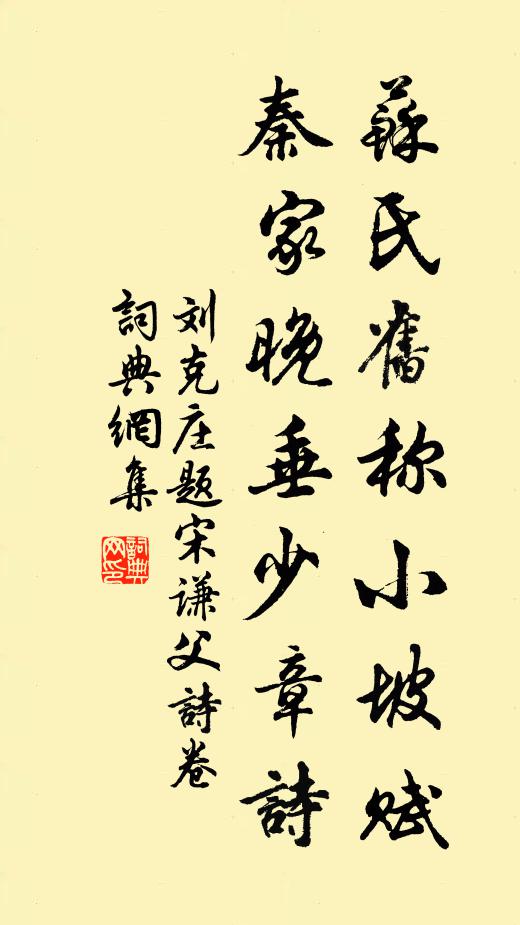 蘇氏舊称小坡賦
秦家晚垂少章詩
刘克庄题宋谦父詩卷
詞典網集
詞典网印